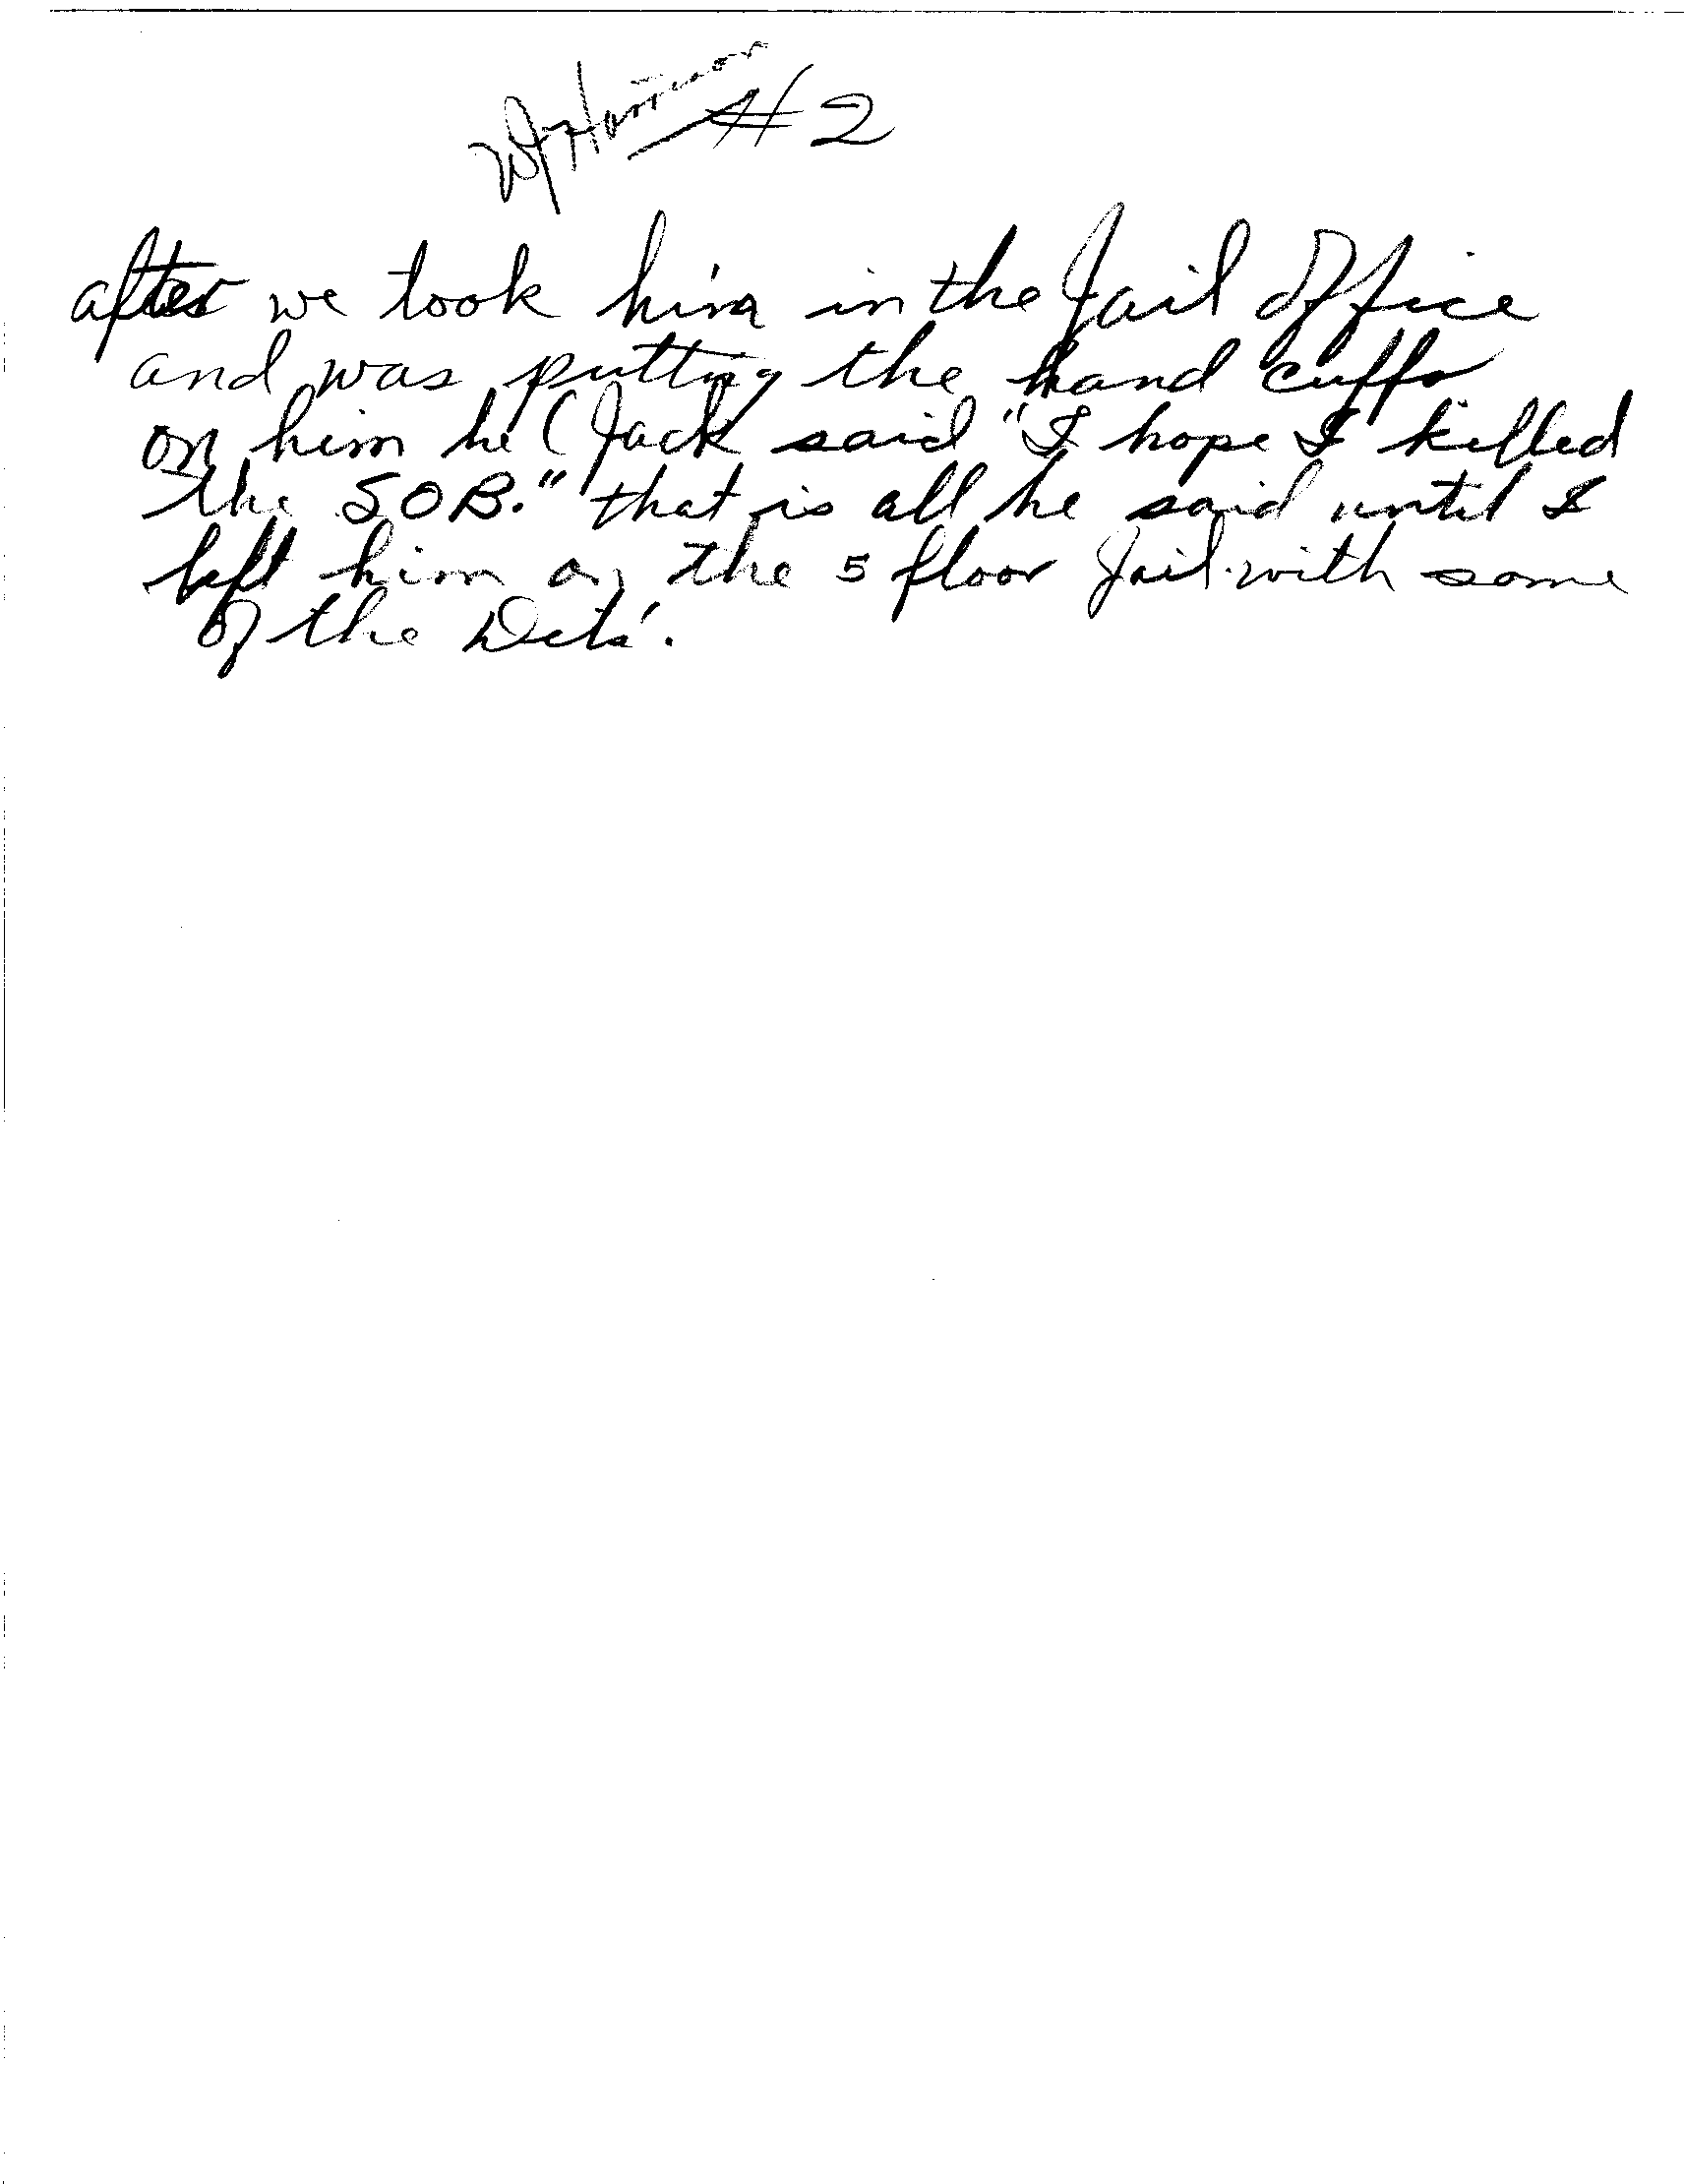 WJ Harrison #2
after we took him in the Jail Office
and was putting the hand cuffs
on him he (Jack said "I hope I killed
the SOB." that is all he said until I
left him on the 5 floor Jail with some
of the Dets'.